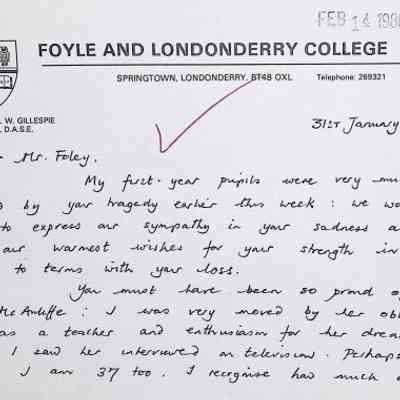 FEB 14 198
FOYLE AND LONDONDERRY COLLEGE
SPRINGTOWN, LONDONDERRY, BT48 OXL Telephone: 269321
W. GILLESPIE
D.A.S.E.
31ST January
Mr. Foley,
My first-year pupils were very mu
by your tragedy earlier this week: we wo
to express our sympathy in your sadness a
our warmest wishes for your strength in
to terms with your loss.
You must have been so proud of
McAuliffe: I was very moved by her obv
as a teacher and enthusiasm for her drea
I saw her interviewed on television. Perhaps
I am 37 too. I recognise had much